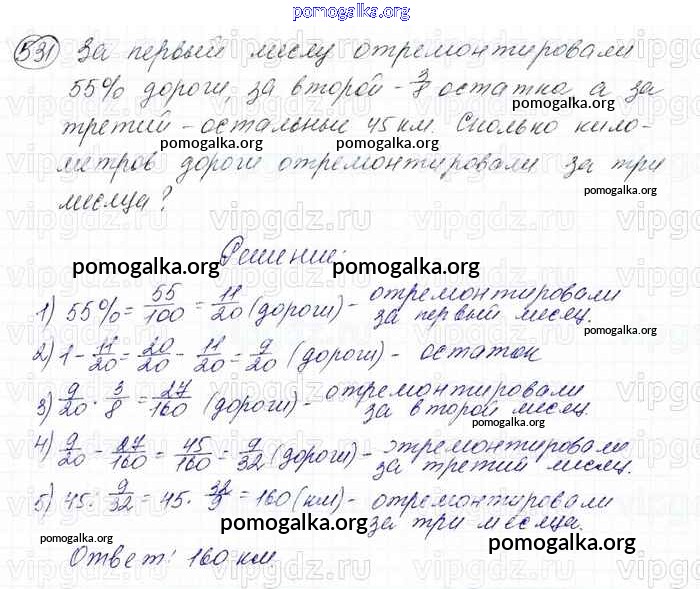 pomogalka.org
531 За первый месяц отремонтировали
55% дороги, за второй - 3/8 остатка а за
pomogalka.org
третий - остальные 45 км. Сколько кило-
pomogalka.org pomogalka.org
метров дороги отремонтировали за три
pomogalka.org
месяца?
Решение:
pomogalka.org pomogalka.org
1) 55% = 55/100 = 11/20 (дороги) - отремонтировали
за первый месяц.
pomogalka.org
2) 1 - 11/20 = 20/20 - 11/20 = 9/20 (дороги) - остаток
3) 9/20 · 3/8 = 27/160 (дороги) - отремонтировали
за второй месяц.
pomogalka.org
4) 9/20 - 27/160 = 45/160 = 9/32 (дороги) - отремонтировали
за третий месяц.
5) 45 : 9/32 = 45 · 32/9 = 160 (км) - отремонтировали
за три месяца.
pomogalka.org
pomogalka.org pomogalka.org
Ответ: 160 км
pomogalka.org